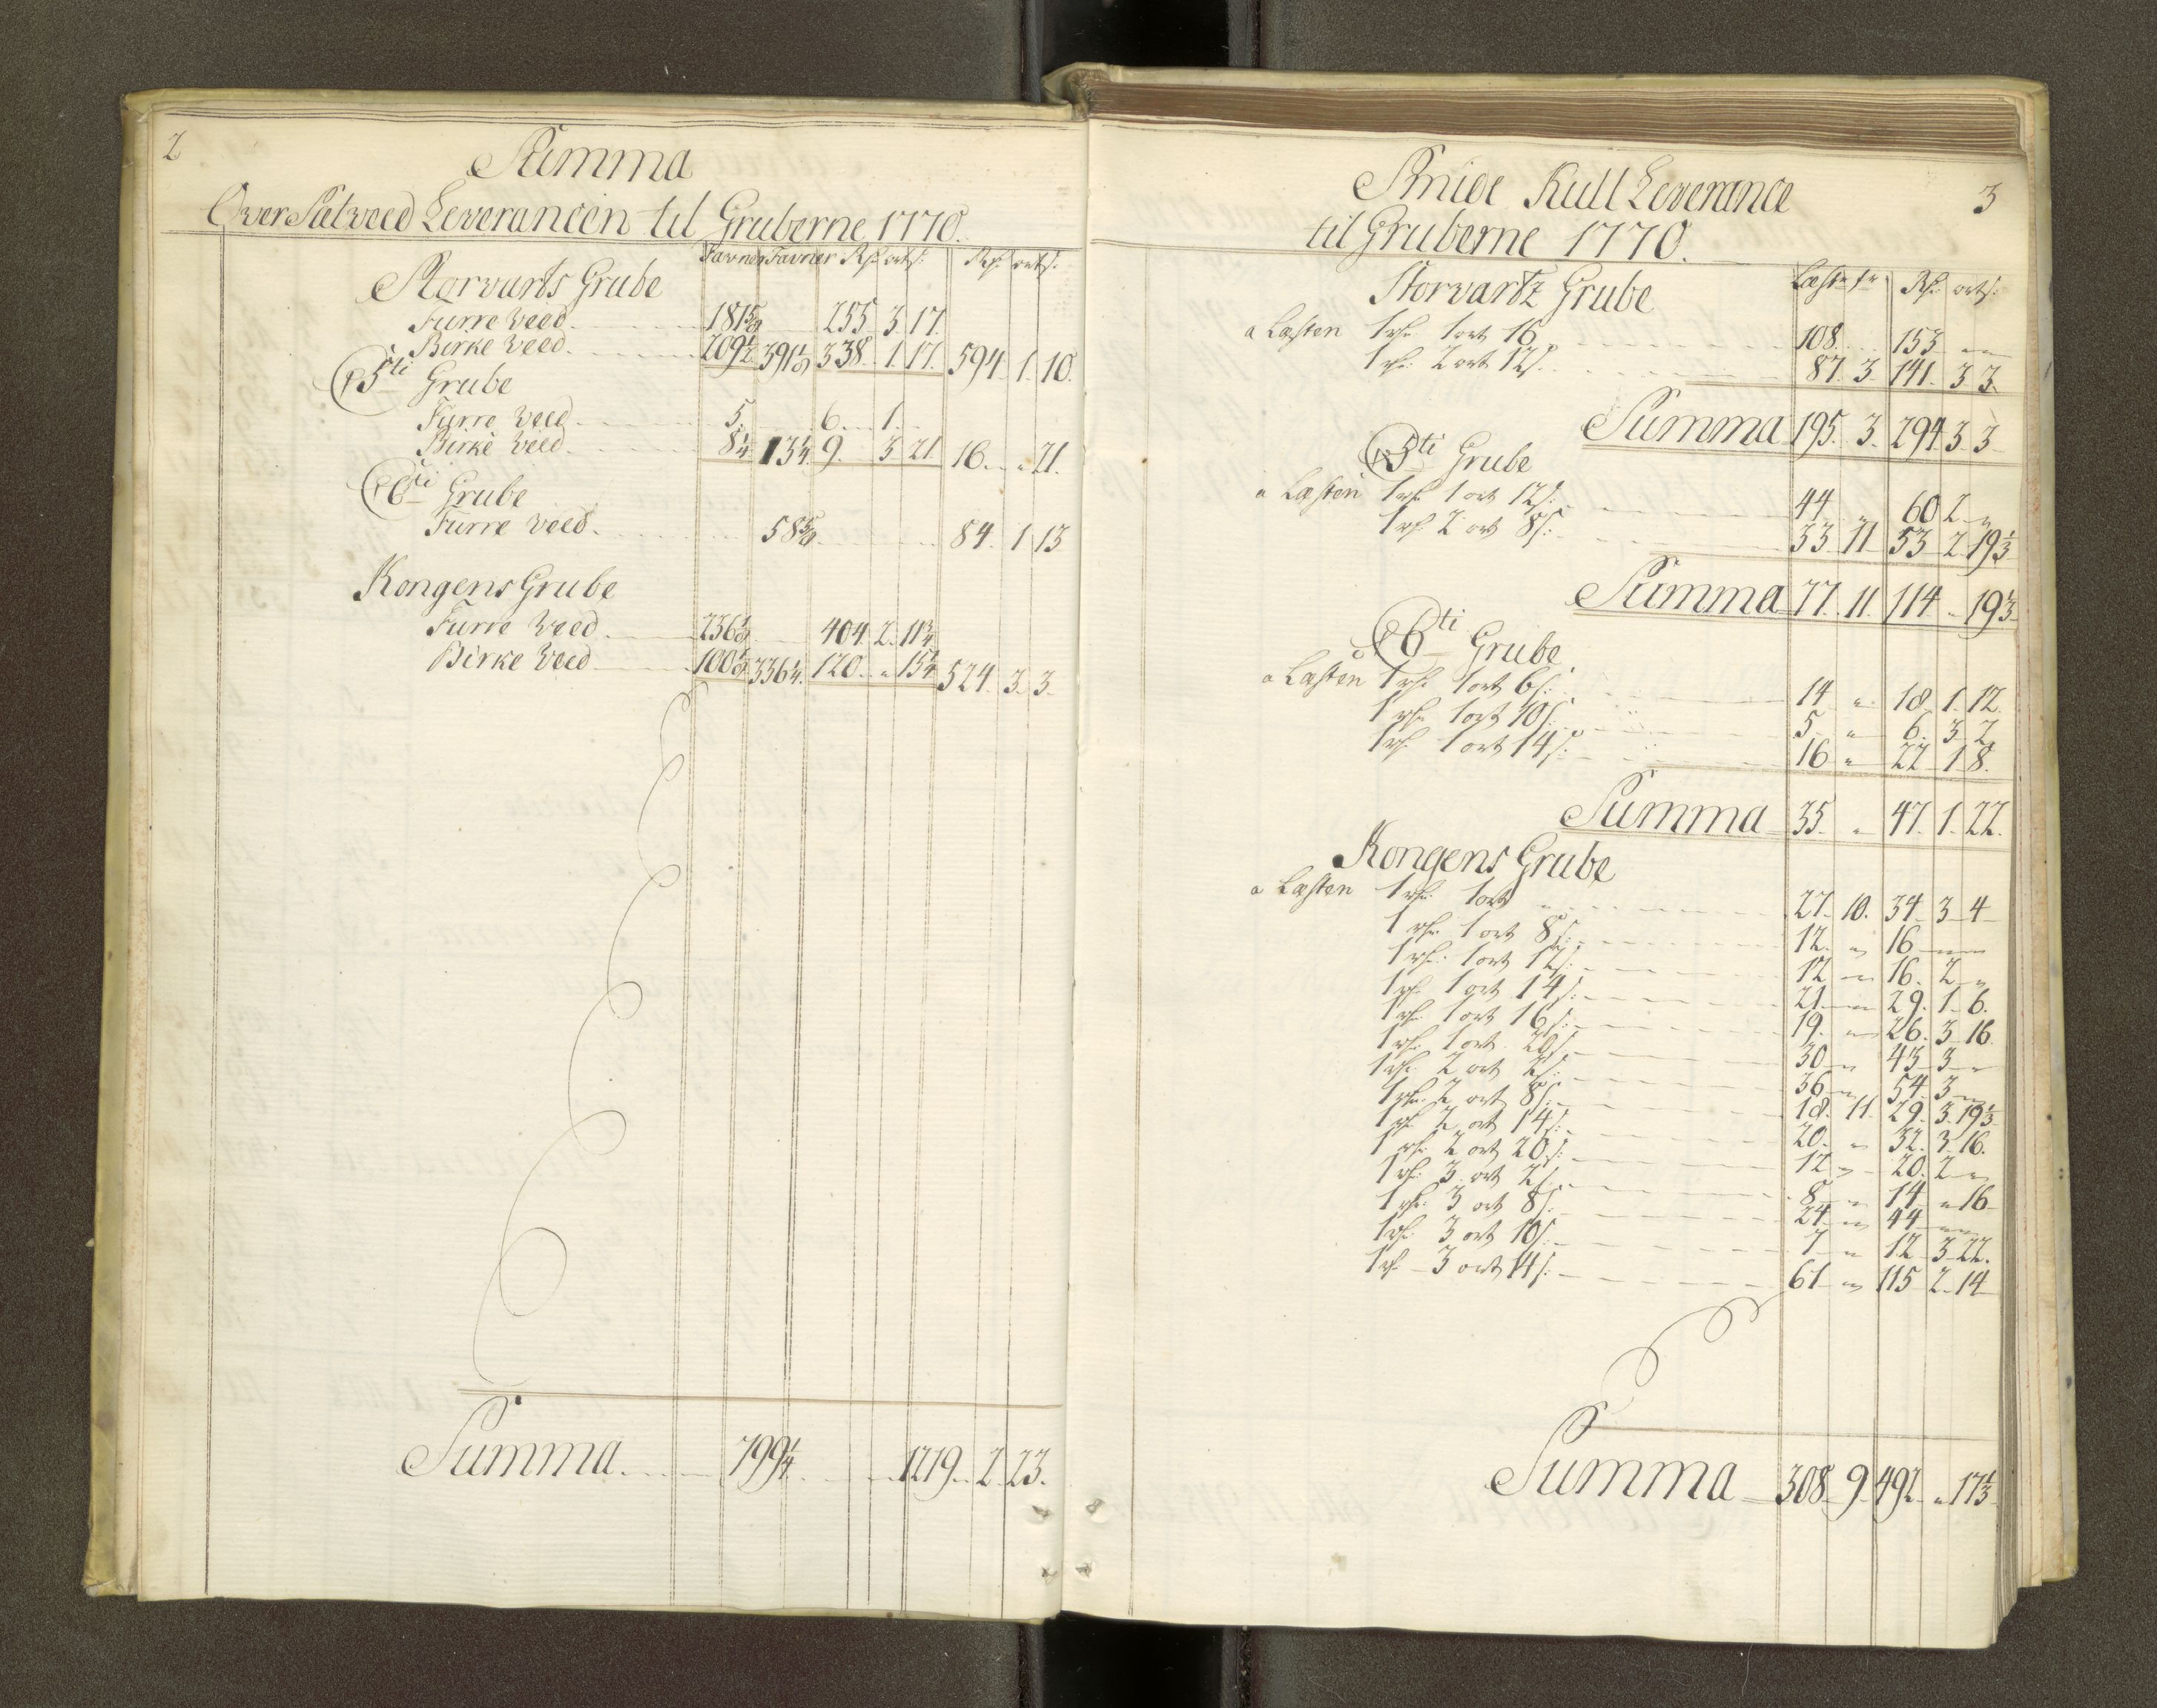 2
Summa
Over Sætveed Leverancen til Gruberne 1770.
Favner Favner Rdr ort s: Rdr ort s.
Storvarts Grube
Furre Veed 181 5/8 255 3 17.
Birke Veed 209 1/2 391 1/8 338 1. 17. 594 1. 10.
5ti Grube
Furre Veed 5. 6. 1.
Birke Veed 8 1/4 13 1/4 9. 3 21 16. „ 21.
6ti Grube
Furre Veed 58 5/8 84. 1 13
Kongens Grube
Furre Veed 236 1/8 404. 2. 11 3/4
Birke Veed 100 1/8 336 1/4. 120. „ 15 1/4 524. 3. 3.
Summa 799 1/4 1219. 2 23.
3
Smide Kull Leverance
til Gruberne 1770.
Læster tr Rdr ort s:
Storvartz Grube
a Læsten 1 rdr 1 ort 16 108. 153 „ „
1 rdr 2 ort 12 s: 87. 3. 141. 3 3.
Summa 195. 3. 294 3 3
5ti Grube
a Læsten 1 rdr 1 ort 12 s: 44 „ 60 2 „
1 rdr 2 ort 8 s: 33 11 53 2 19 1/3
Summa 77. 11. 114 „ 19 1/3
6ti Grube
a Læsten 1 rdr 1 ort 6 s: 14 „ 18. 1. 12.
1 rdr 1 ort 10 s: 5 „ 6. 3 2
1 rdr 1 ort 14 s: 16 „ 22 1 8.
Summa 35 „ 47. 1. 22.
Kongens Grube
a Læsten 1 rdr 1 ort 27. 10. 34 3 4
1 rdr 1 ort 8 s: 12. „ 16 „ „
1 rdr 1 ort 12 s: 12 „ 16. 2 „
1 rdr 1 ort 14 s: 21 „ 29. 1 6.
1 rdr 1 ort 16 s: 19. „ 26. 3 16
1 rdr 1 ort 20 s: 30 „ 43 3 „
1 rdr 2 ort 2 s: 36 „ 54 3 „
1 rdr 2 ort 8 s: 18. 11. 29. 3. 19 1/3
1 rdr 2 ort 14 s: 20. „ 32. 3. 16.
1 rdr 2 ort 20 s: 12 „ 20. 2 „
1 rdr 3 ort 2 s: 8 „ 14 „ 16
1 rdr 3 ort 8 s: 24 „ 44 „ „
1 rdr 3 ort 10 s: 7 „ 12 3 22.
1 rdr 3 ort 14 s: 61 „ 115 2 14
Summa 308 9 492 „ 17 1/3